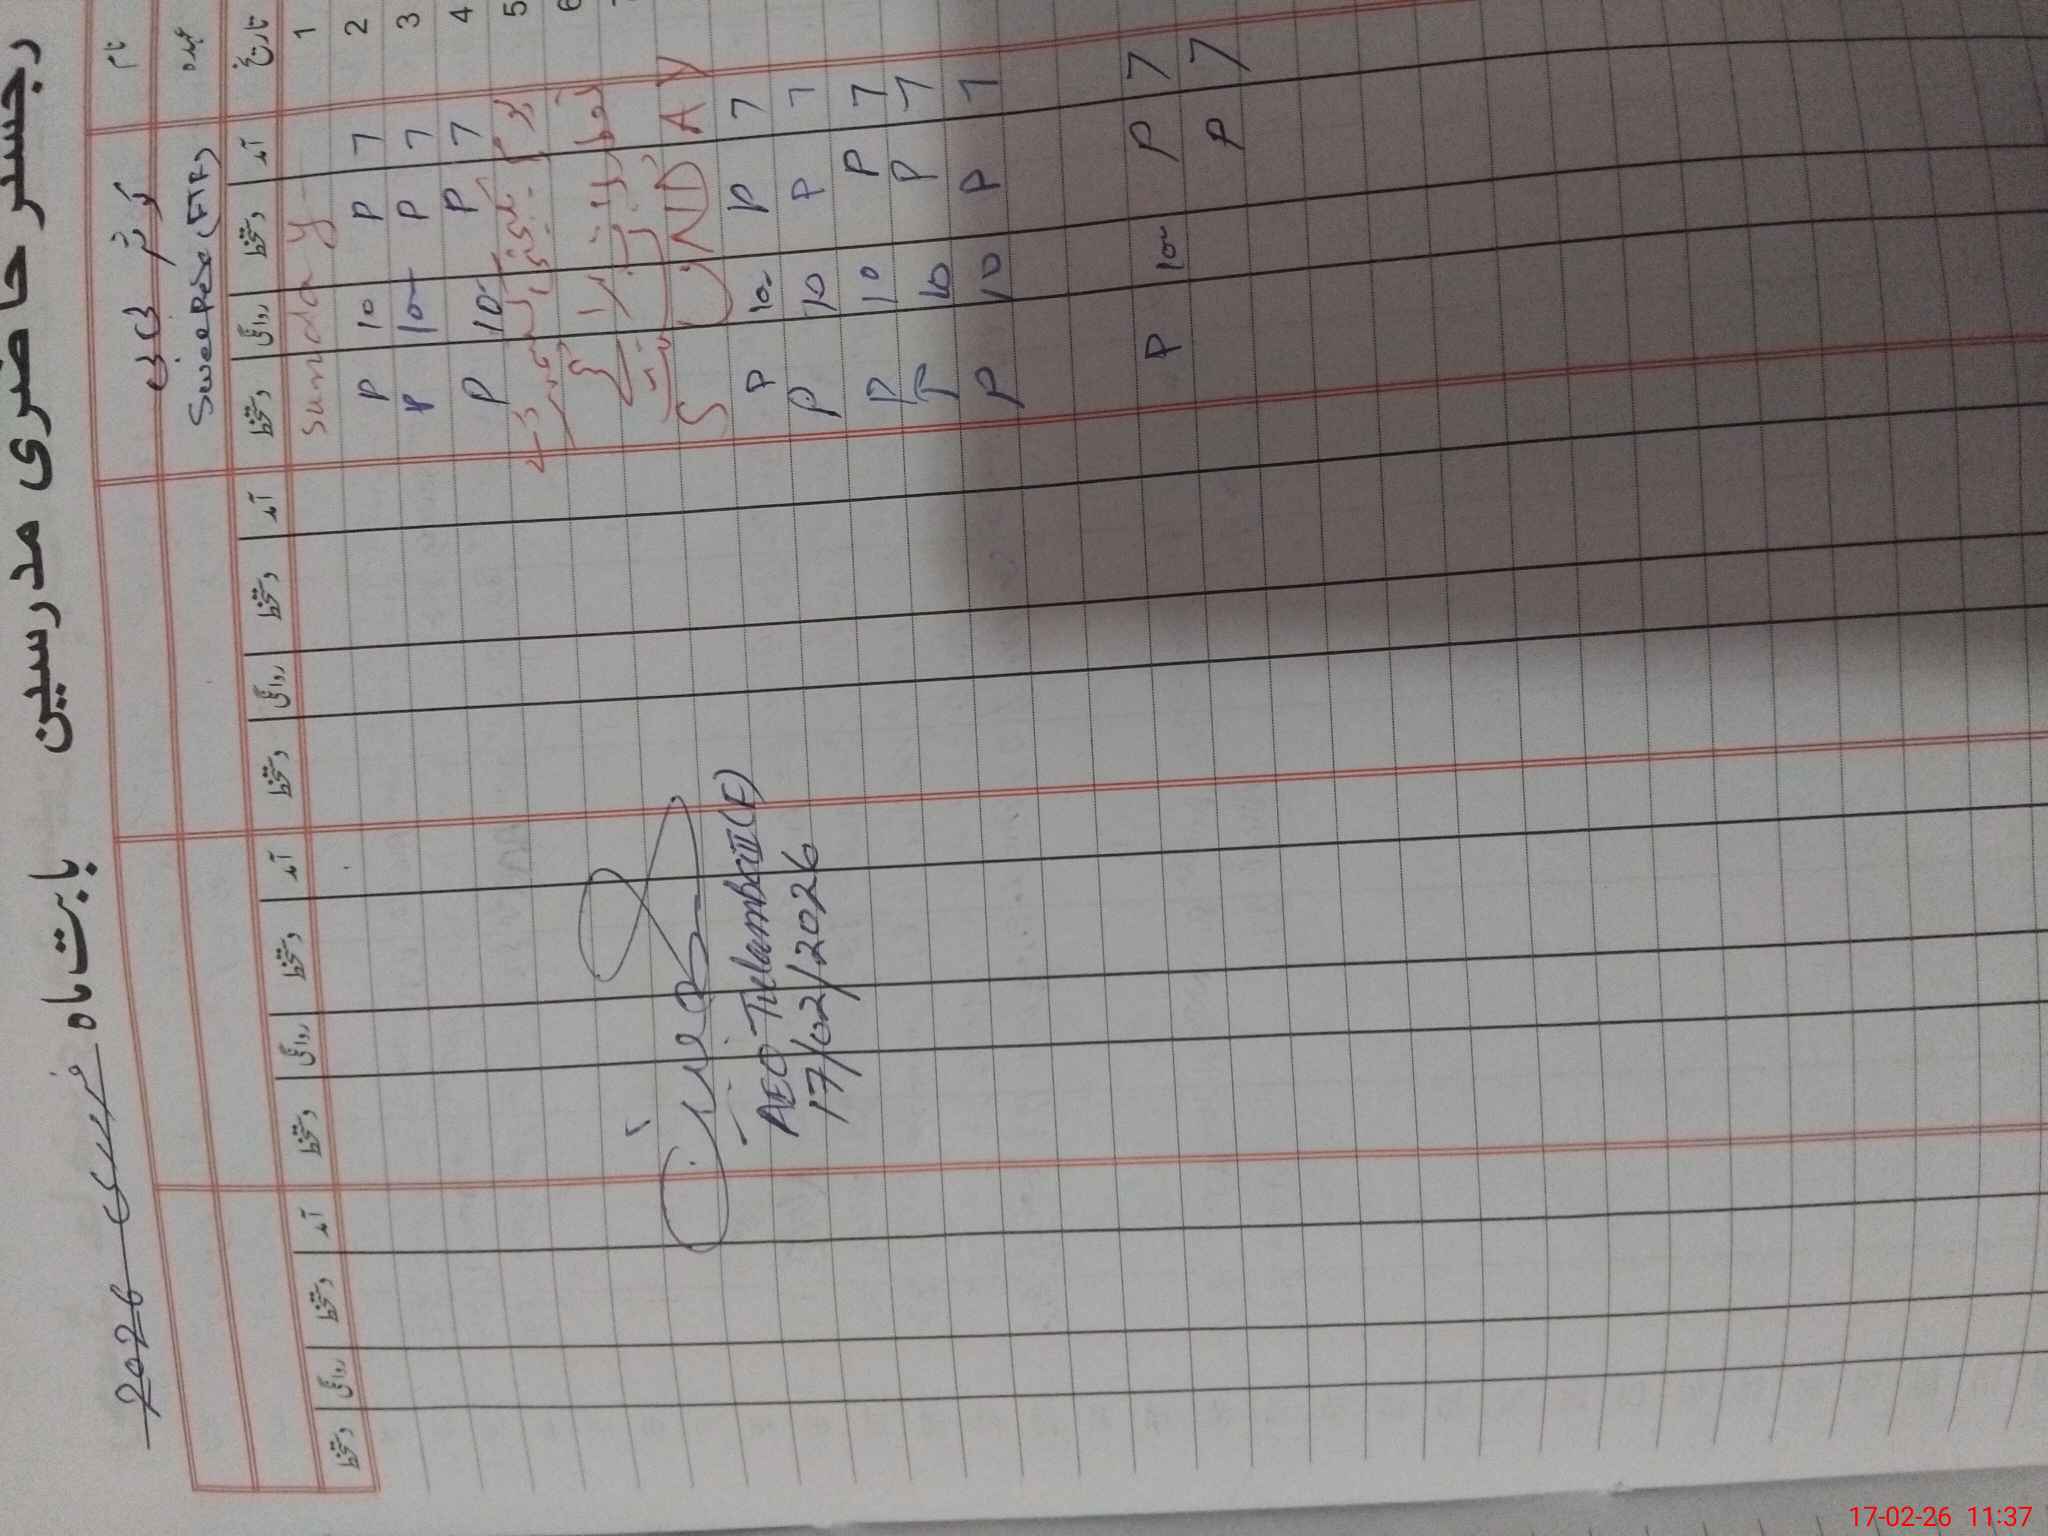 رجسٹر حاضری مدرسین بابت ماہ فروری 2026
نام
عہدہ Sweeper (FTR)
تاریخ آمد دستخط روانگی دستخط آمد دستخط روانگی دستخط آمد دستخط روانگی دستخط آمد دستخط روانگی دستخط
1 Sunday
2 7 P 10 P
3 7 P 10 P
4 7 P 10 P
5
6
SUNDAY
7 P 10 P
7 P 10 P
7 P 10 P
7 P 10 P
7 P 10 P
7 P 10 P
7 P
AEO Tulamba III (F)
17/02/2026
17-02-26 11:37